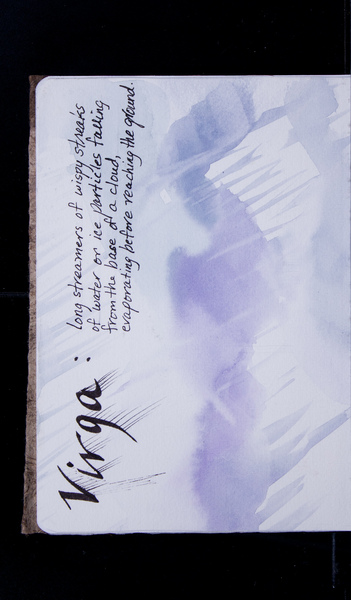 Virga:
long streamers of wispy streaks
of water or ice particles falling
from the base of a cloud,
evaporating before reaching the ground.